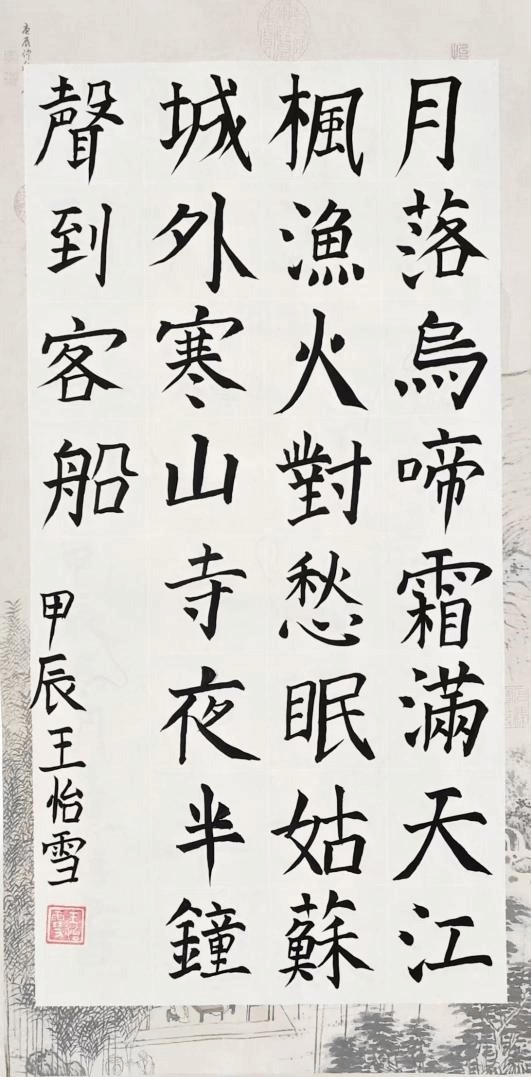 月落烏啼霜滿天江
楓漁火對愁眠姑蘇
城外寒山寺夜半鐘
聲到客船
甲辰王怡雪